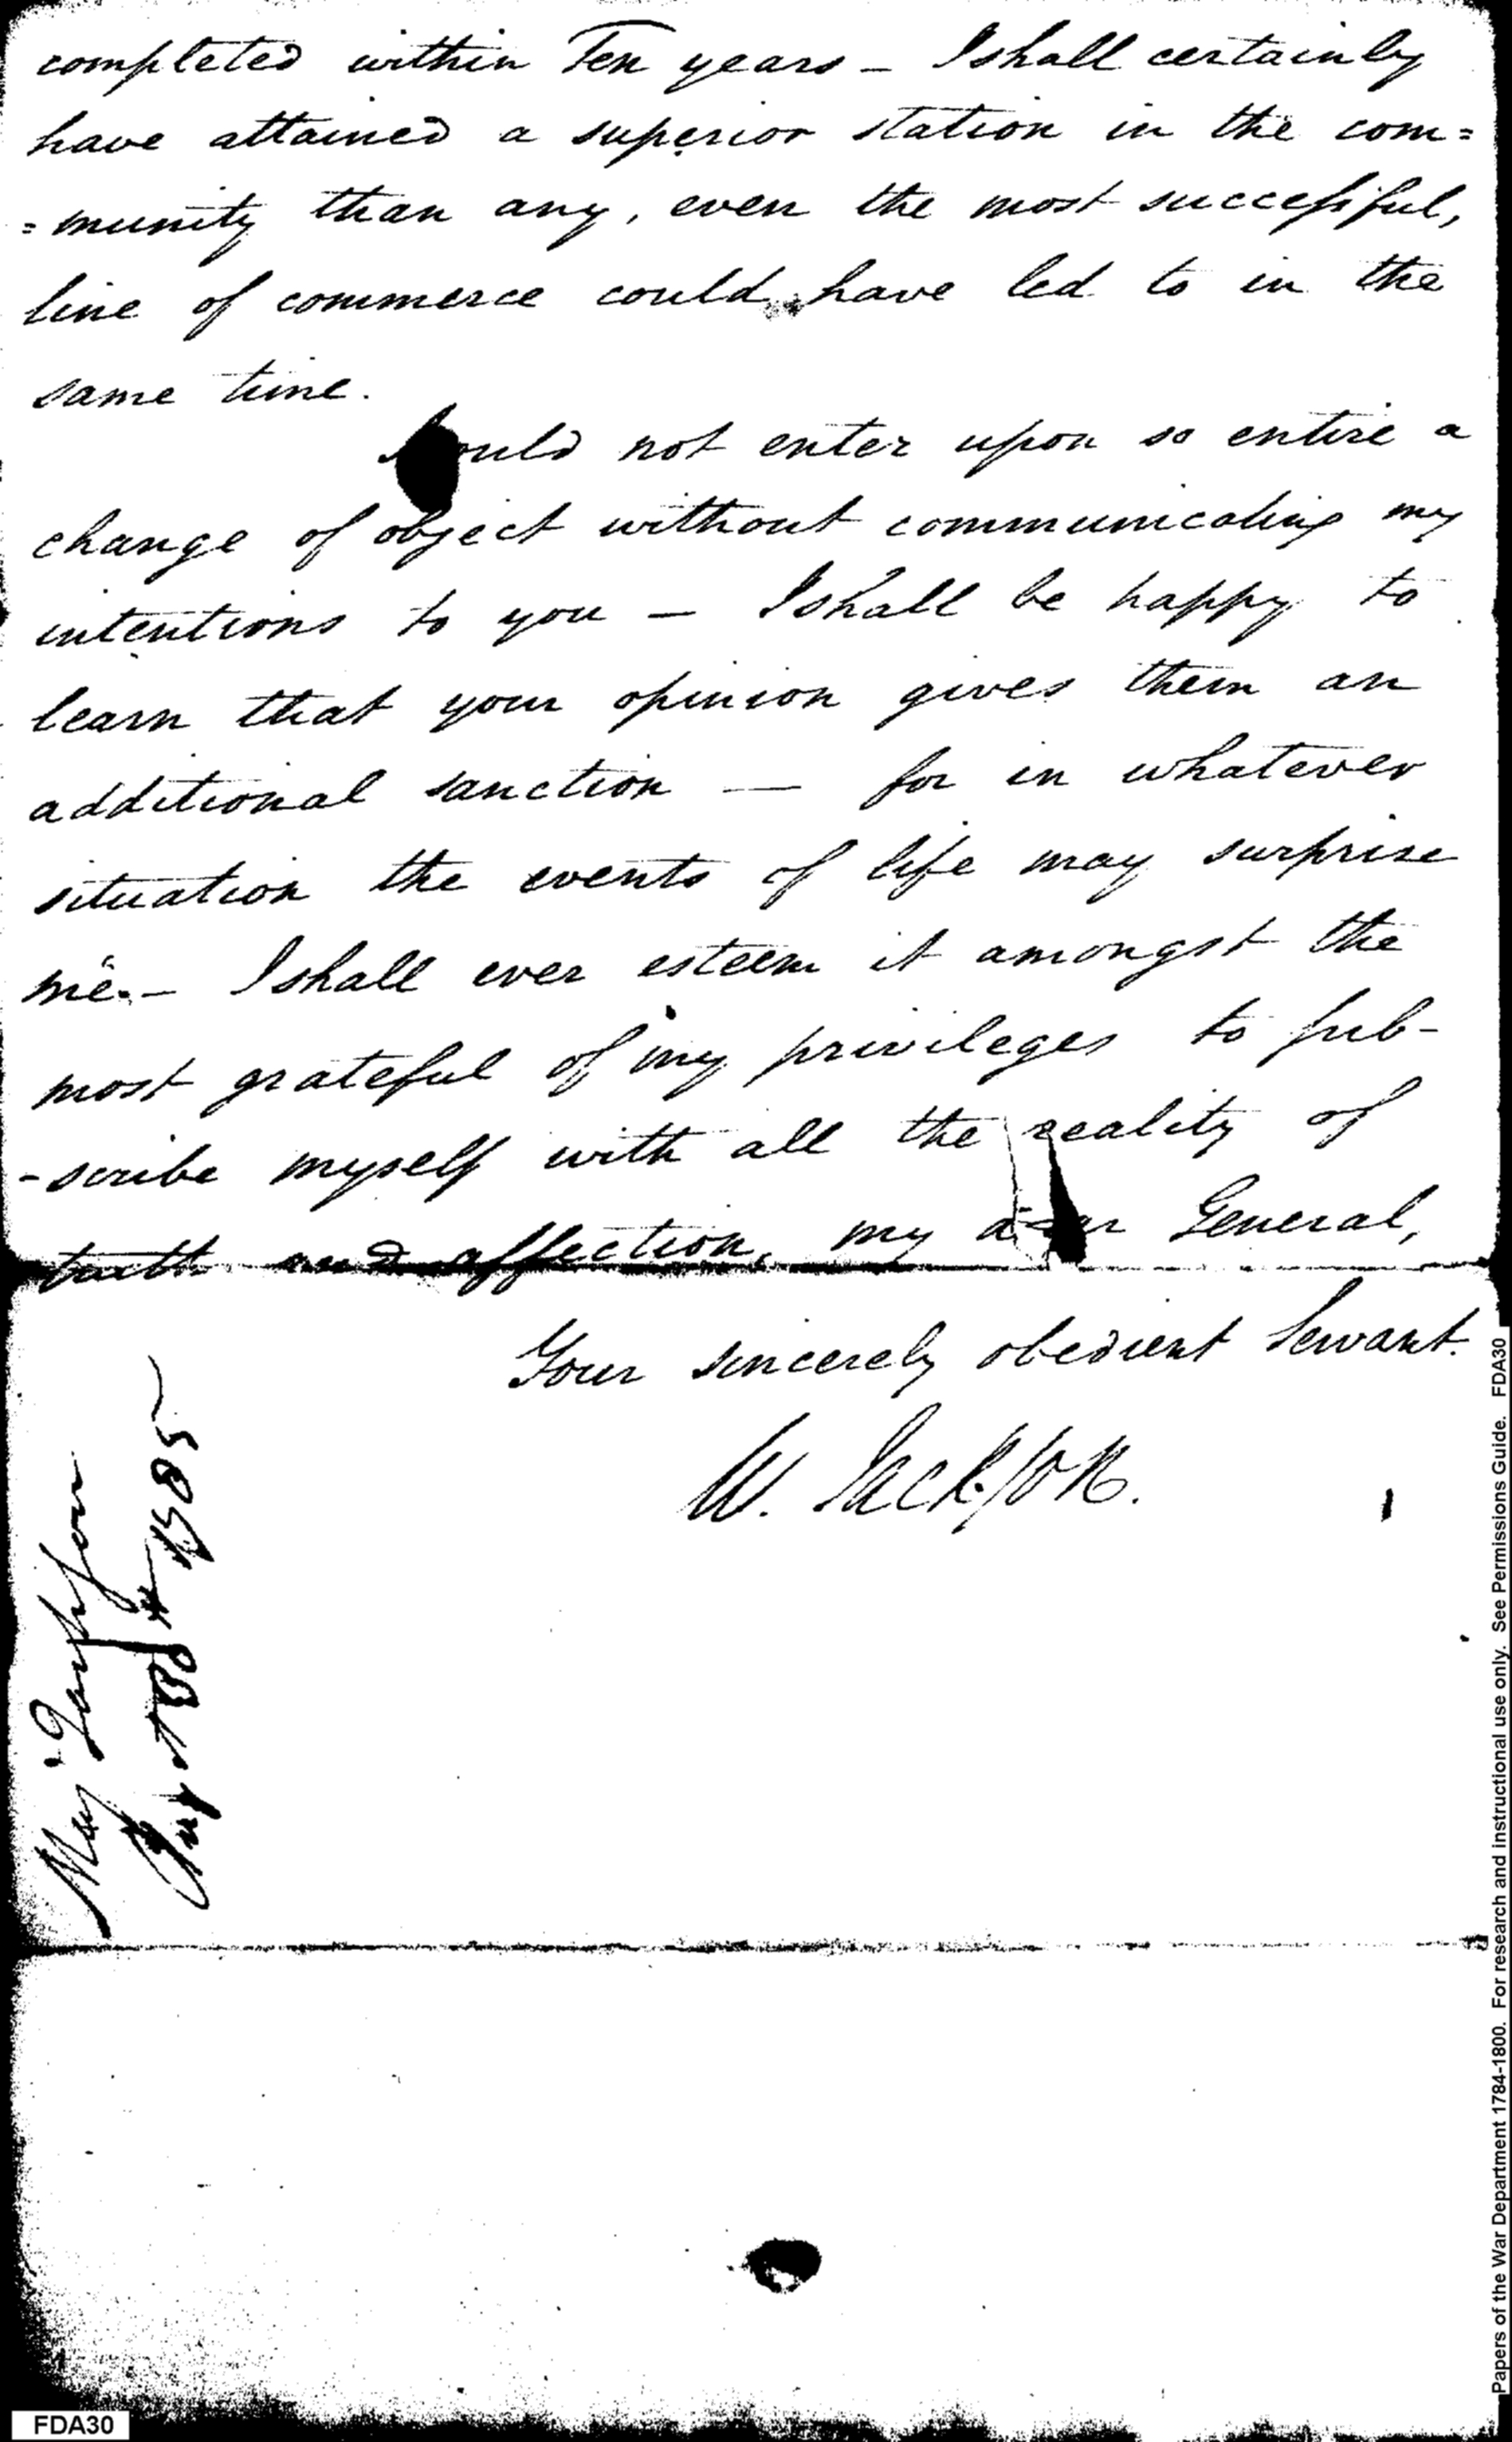 completed within Ten years — I shall certainly
have attained a superior station in the com=
=munity than any, even the most successful,
line of commerce could have led to in the
same time.
I could not enter upon so entire a
change of object without communicating my
intentions to you — I shall be happy to
learn that your opinion gives them an
additional sanction — for in whatever
situation the events of life may surprise
me. — I shall ever esteem it amongst the
most grateful of my privileges to sub-
-scribe myself with all the reality of
truth and affection, my dear General,
Your sincerely obedient Servant.
W. Jackson.
Maj Jackson
1785
Papers of the War Department 1784-1800. For research and instructional use only. See Permissions Guide. FDA30
FDA30